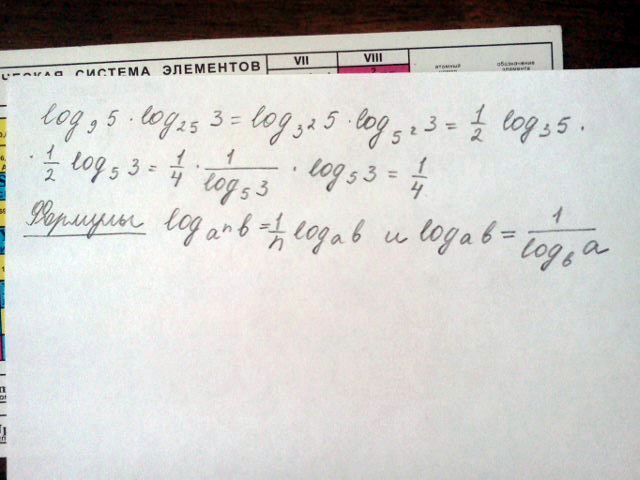 VII VIII
ЧЕСКАЯ СИСТЕМА ЭЛЕМЕНТОВ
атомный обозначение
элемента
log₉ 5 · log₂₅ 3 = log₃² 5 · log₅² 3 = 1/2 log₃ 5 ·
· 1/2 log₅ 3 = 1/4 · 1/log₅ 3 · log₅ 3 = 1/4
Формулы log_aⁿ b = 1/n log_a b и log_a b = 1/log_b a